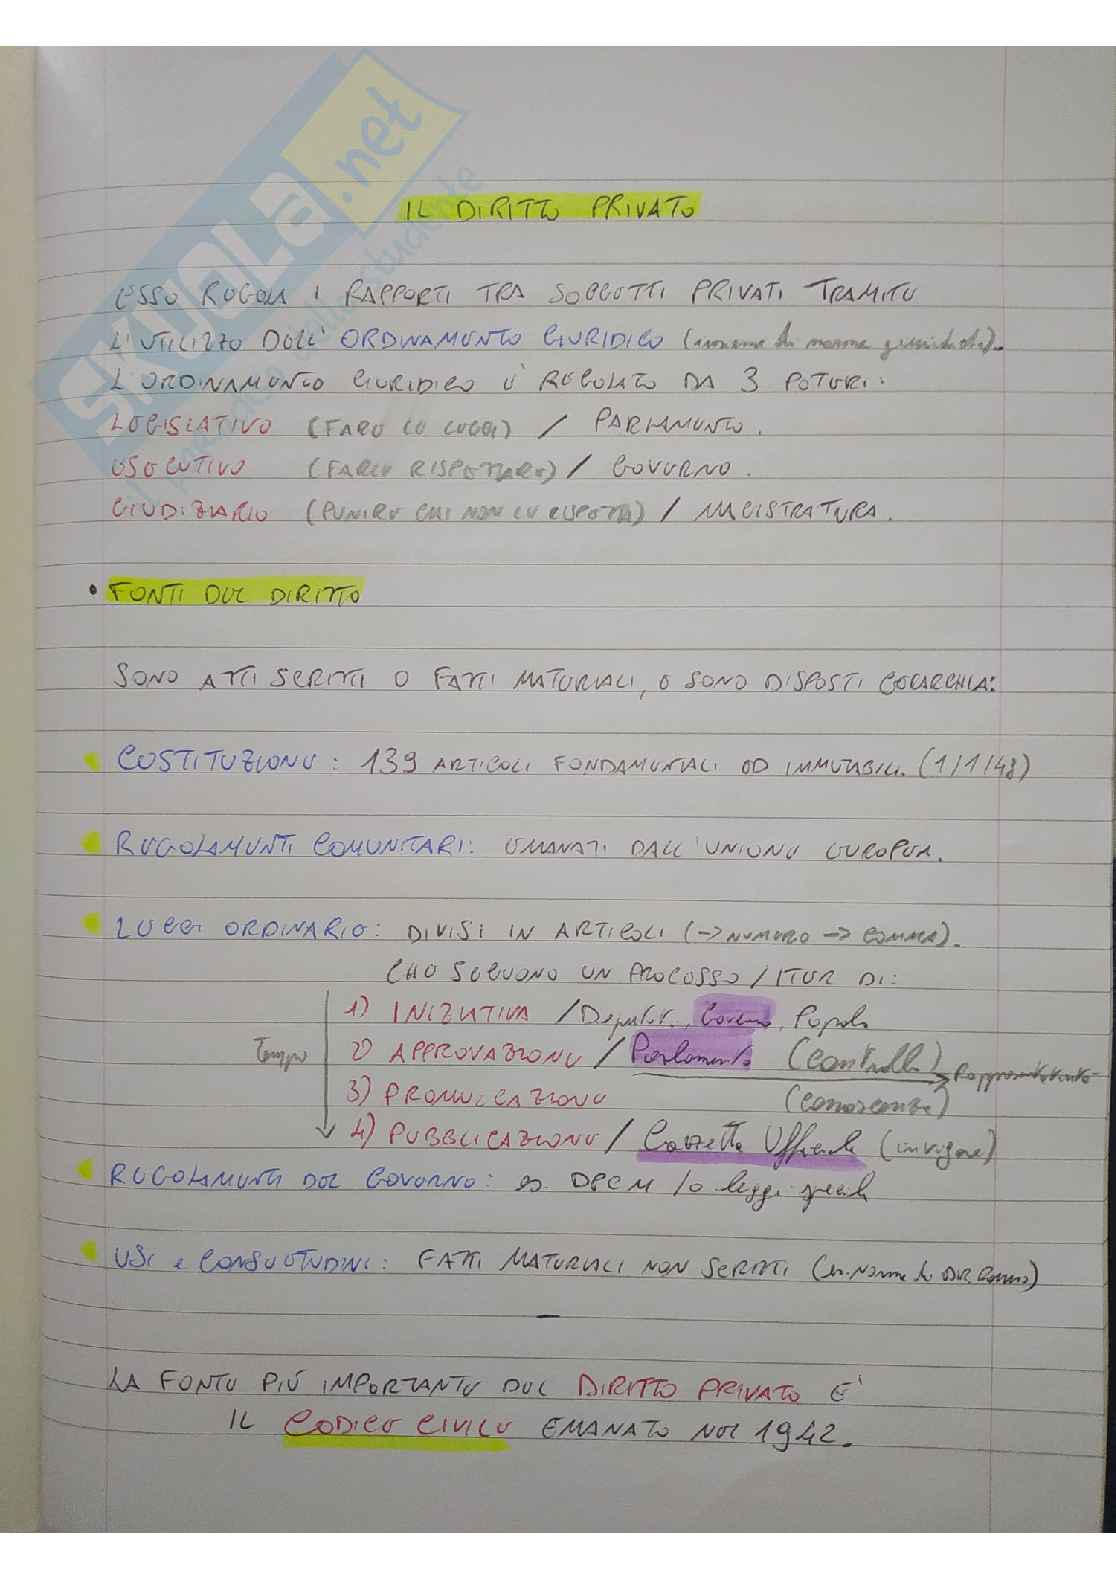 SKUOLA.net
IL DIRITTO PRIVATO
ESSO REGOLA I RAPPORTI TRA SOGGETTI PRIVATI TRAMITE
L'UTILIZZO DELL' ORDINAMENTO GIURIDICO (insieme di norme giuridiche).
L'ORDINAMENTO GIURIDICO È REGOLATO DA 3 POTERI:
LEGISLATIVO (FARE LE LEGGI) / PARLAMENTO.
ESECUTIVO (FARLE RISPETTARE) / GOVERNO.
GIUDIZIARIO (PUNIRE CHI NON LE RISPETTA) / MAGISTRATURA.
• FONTI DEL DIRITTO
SONO ATTI SCRITTI O FATTI MATERIALI, E SONO DISPOSTI GERARCHIA:
COSTITUZIONE: 139 ARTICOLI FONDAMENTALI ED IMMUTABILI. (1/1/48)
REGOLAMENTI COMUNITARI: EMANATI DALL'UNIONE EUROPEA.
LEGGI ORDINARIE: DIVISI IN ARTICOLI (-> NUMERO -> COMMA).
CHE SEGUONO UN PROCESSO / ITER DI:
1) INIZIATIVA / Deputati, Governo, Popolo
Tempo 2) APPROVAZIONE / Parlamento (controllo)
3) PROMULGAZIONE (conoscenza)
4) PUBBLICAZIONE / Gazzetta Ufficiale (in vigore)
REGOLAMENTI DEL GOVERNO: es DPCM / o leggi speciali
USI e CONSUETUDINI: FATTI MATERIALI NON SCRITTI
LA FONTE PIÙ IMPORTANTE DEL DIRITTO PRIVATO È
IL CODICE CIVILE EMANATO NEL 1942.